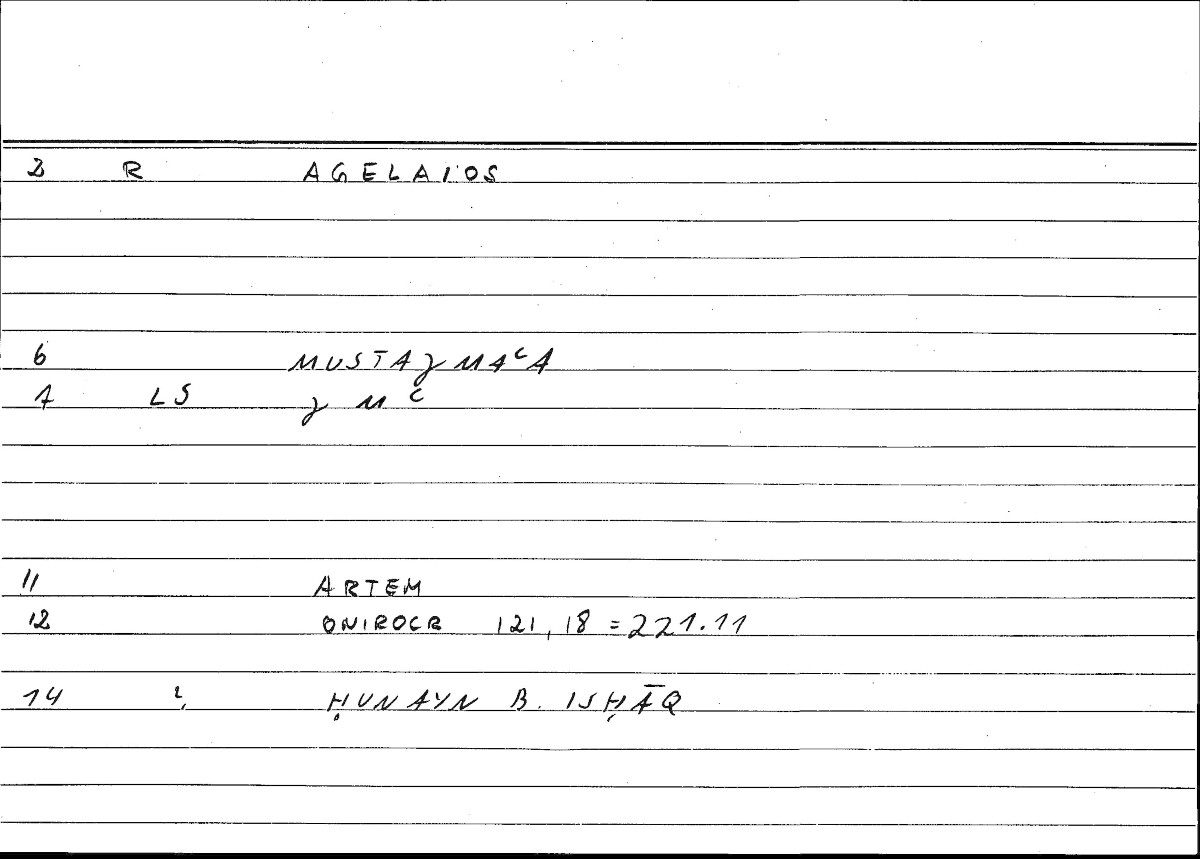 2 R AGELAIOS
6 MUSTAǧMAᶜA
7 LS ǧ M ᶜ
11 ARTEM
12 ONIROCR 121,18 = 221.11
14 ḤUNAYN B. ISḤĀQ